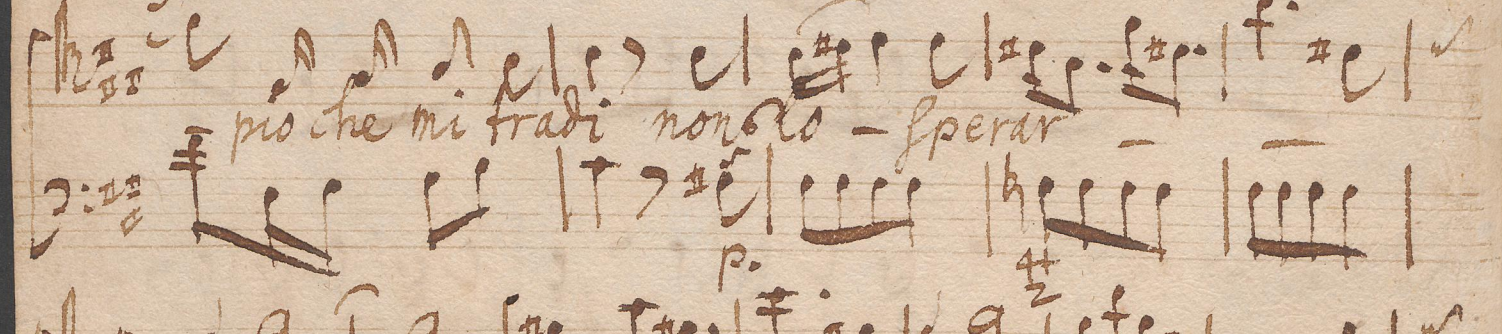 pio che mi tradi non lo sperar
p.
4
2